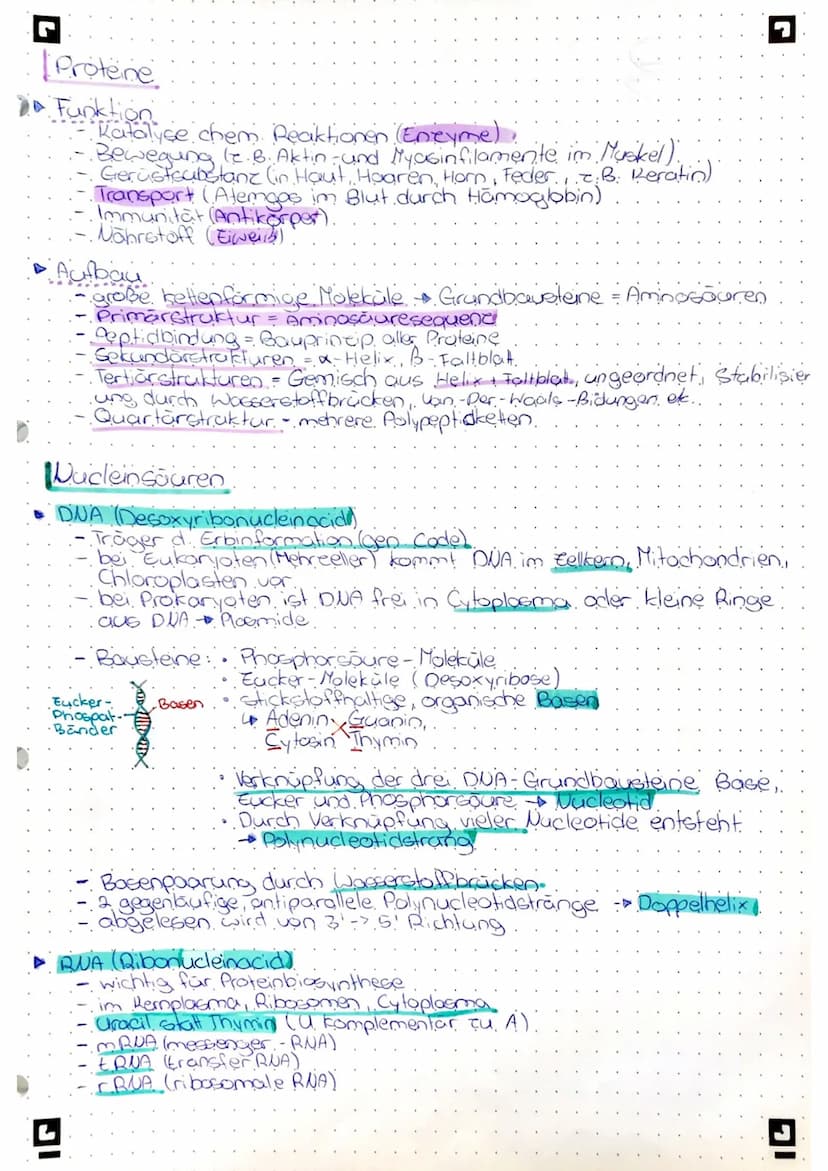 Proteine
Funktion
- Katalyse chem. Reaktionen (Enzyme)
- Bewegung (z.B. Aktin- und Myosinfilamente im Muskel)
- Gerüstsubstanz (in Haut, Haaren, Horn, Feder, z.B. Keratin)
- Transport (Atemgas im Blut durch Hämoglobin)
- Immunität (Antikörper)
- Nährstoff (Eiweiß)
Aufbau
- große kettenförmige Moleküle → Grundbausteine = Aminosäuren
- Primärstruktur = Aminosäuresequenz
- Peptidbindung = Bauprinzip aller Proteine
- Sekundärstrukturen = α-Helix, β-Faltblat
- Tertiärstrukturen = Gemisch aus Helix + Faltblat, ungeordnet, Stabilisier
ung durch Wasserstoffbrücken, Van-Der-Waals-Bidungen etc.
- Quartärstruktur - mehrere Polypeptidketten
Nucleinsäuren
DNA (Desoxyribonucleinacid)
- Träger d. Erbinformation (gen. Code)
- bei Eukaryoten (Mehrzeller) kommt DNA im Zellkern, Mitochondrien,
Chloroplasten vor
- bei Prokaryoten ist DNA frei in Cytoplasma oder kleine Ringe
aus DNA → Plasmide
- Bausteine: • Phosphorsäure-Moleküle
• Zucker-Moleküle (Desoxyribose)
• stickstoffhaltige, organische Basen
↳ Adenin Guanin,
Cytosin Thymin
Zucker-
Phospat-
Bänder
Basen
• Verknüpfung der drei DNA-Grundbausteine Base,
Zucker und Phosphorsäure → Nucleotid
• Durch Verknüpfung vieler Nucleotide entsteht
→ Polynucleotidstrang
- Basenpaarung durch Wasserstoffbrücken
- 2 gegenläufige antiparallele Polynucleotidstränge → Doppelhelix
- abgelesen wird von 3' -> 5' Richtung
RNA (Ribonucleinacid)
- wichtig für Proteinbiosynthese
- im Kernplasma, Ribosomen, Cytoplasma
- Uracil statt Thymin (U komplementär zu A)
- mRNA (messenger-RNA)
- tRNA (transfer RNA)
- rRNA (ribosomale RNA)